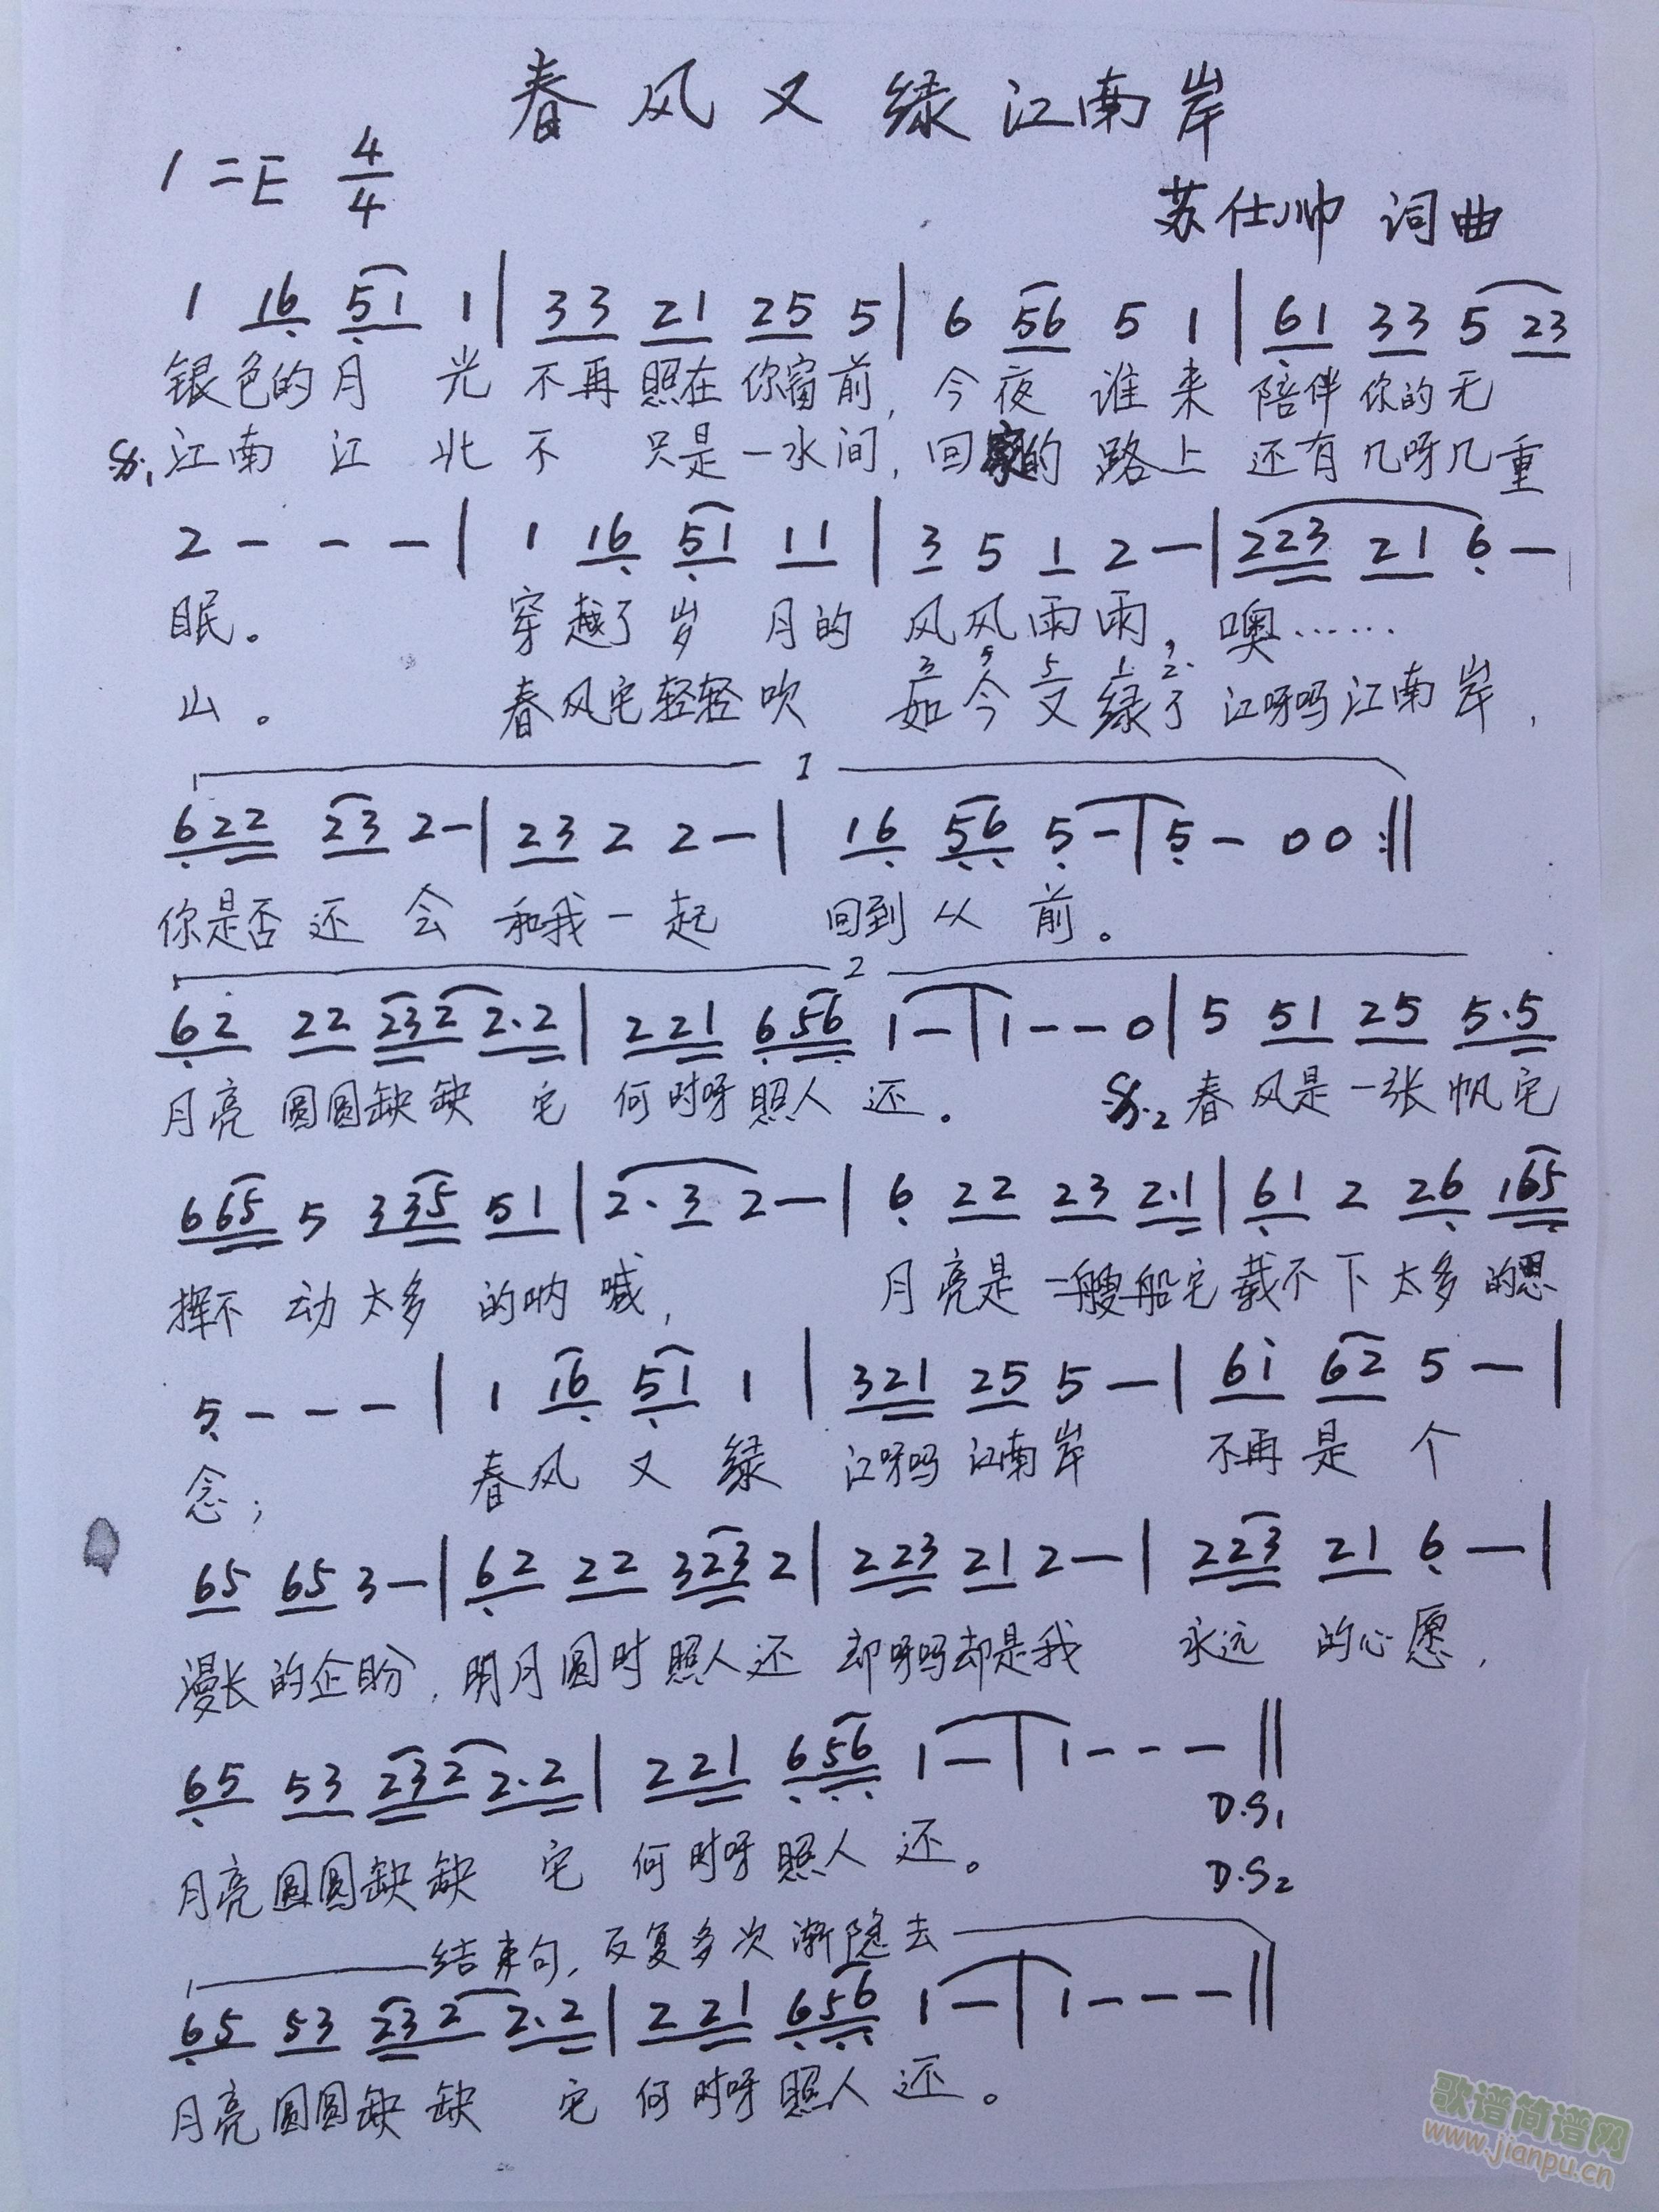 春风又绿江南岸
1=E 4/4
苏仕帅 词曲
1 16 51 1 | 33 21 25 5 | 6 56 5 1 | 61 33 5 23
银色的月 光 不再照在你窗前, 今夜 谁来 陪伴你的无
𝄋1 江南 江 北 不 只是一水间, 回家的 路上 还有几呀几重
2 - - - | 1 16 51 11 | 3 5 1 2 - | 223 21 6 -
眠。 穿越了岁 月的 风风雨雨, 噢……
3 5 5 1 2
山。 春风它轻轻吹 如今又绿了 江呀吗江南岸,
1
622 23 2 - | 23 2 2 - | 16 56 5 - | 5 - 0 0 :||
你是否 还 会 和我一起 回到从 前。
2
62 22 232 2.2 | 221 656 1 - | 1 - - 0 | 5 51 25 5.5
月亮 圆圆缺缺 它 何时呀照人 还。 𝄋2 春风是一张帆它
665 5 335 51 | 2. 3 2 - | 6 22 23 2.1 | 61 2 26 165
挥不 动太多 的呐 喊, 月亮是一艘船它载不下太多的思
5 - - - | 1 16 51 1 | 321 25 5 - | 61 62 5 - |
念; 春风 又 绿 江呀吗江南岸 不再是 个
65 65 3 - | 62 22 323 2 | 223 21 2 - | 223 21 6 - |
漫长的企盼, 明月圆时照人还 却呀吗却是我 永远 的心愿,
65 53 232 2.2 | 221 656 1 - | 1 - - - ||
D.S1
月亮圆圆缺缺 它 何时呀照人 还。
D.S2
结束句, 反复多次渐隐去
65 53 232 2.2 | 221 656 1 - | 1 - - - ||
月亮圆圆缺缺 它 何时呀照人还。
歌谱简谱网
www.jianpu.cn